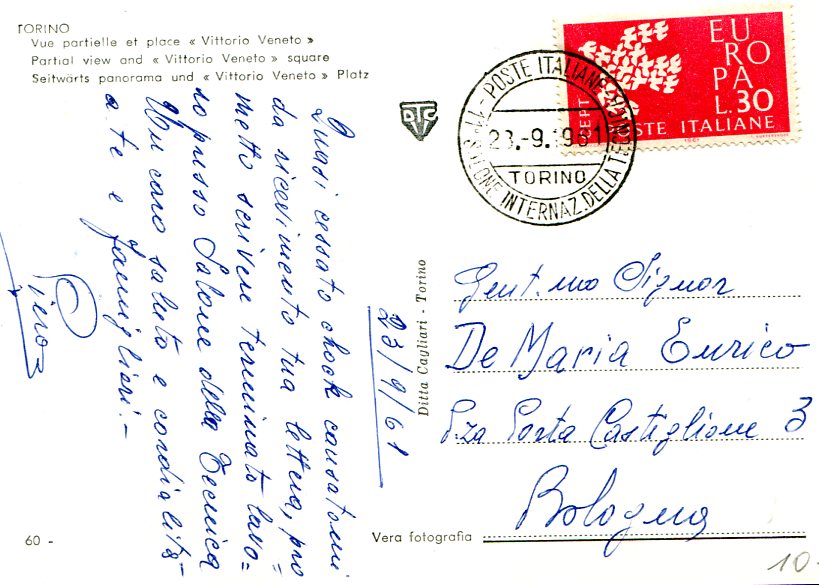 TORINO
Vue partielle et place « Vittorio Veneto »
Partial view and « Vittorio Veneto » square
Seitwärts panorama und « Vittorio Veneto » Platz
Quasi cessato chock causatomi
da ricevimento tua lettera, pro
metto scrivere terminato lavo=
ro presso Salone della Tecnica
Un caro saluto e cordialità
a te e famigliari.-
Piero
23/9/61
DTC
Ditta Cagliari - Torino
EUROPA
L.30
SEPT
POSTE ITALIANE
1961
POSTE ITALIANE
23.-9.1961
TORINO
SALONE INTERNAZ. DELLA TECNICA
Gent.mo Signor
De Maria Enrico
P.za Porta Castiglione 3
Bologna
60 -
Vera fotografia
10-